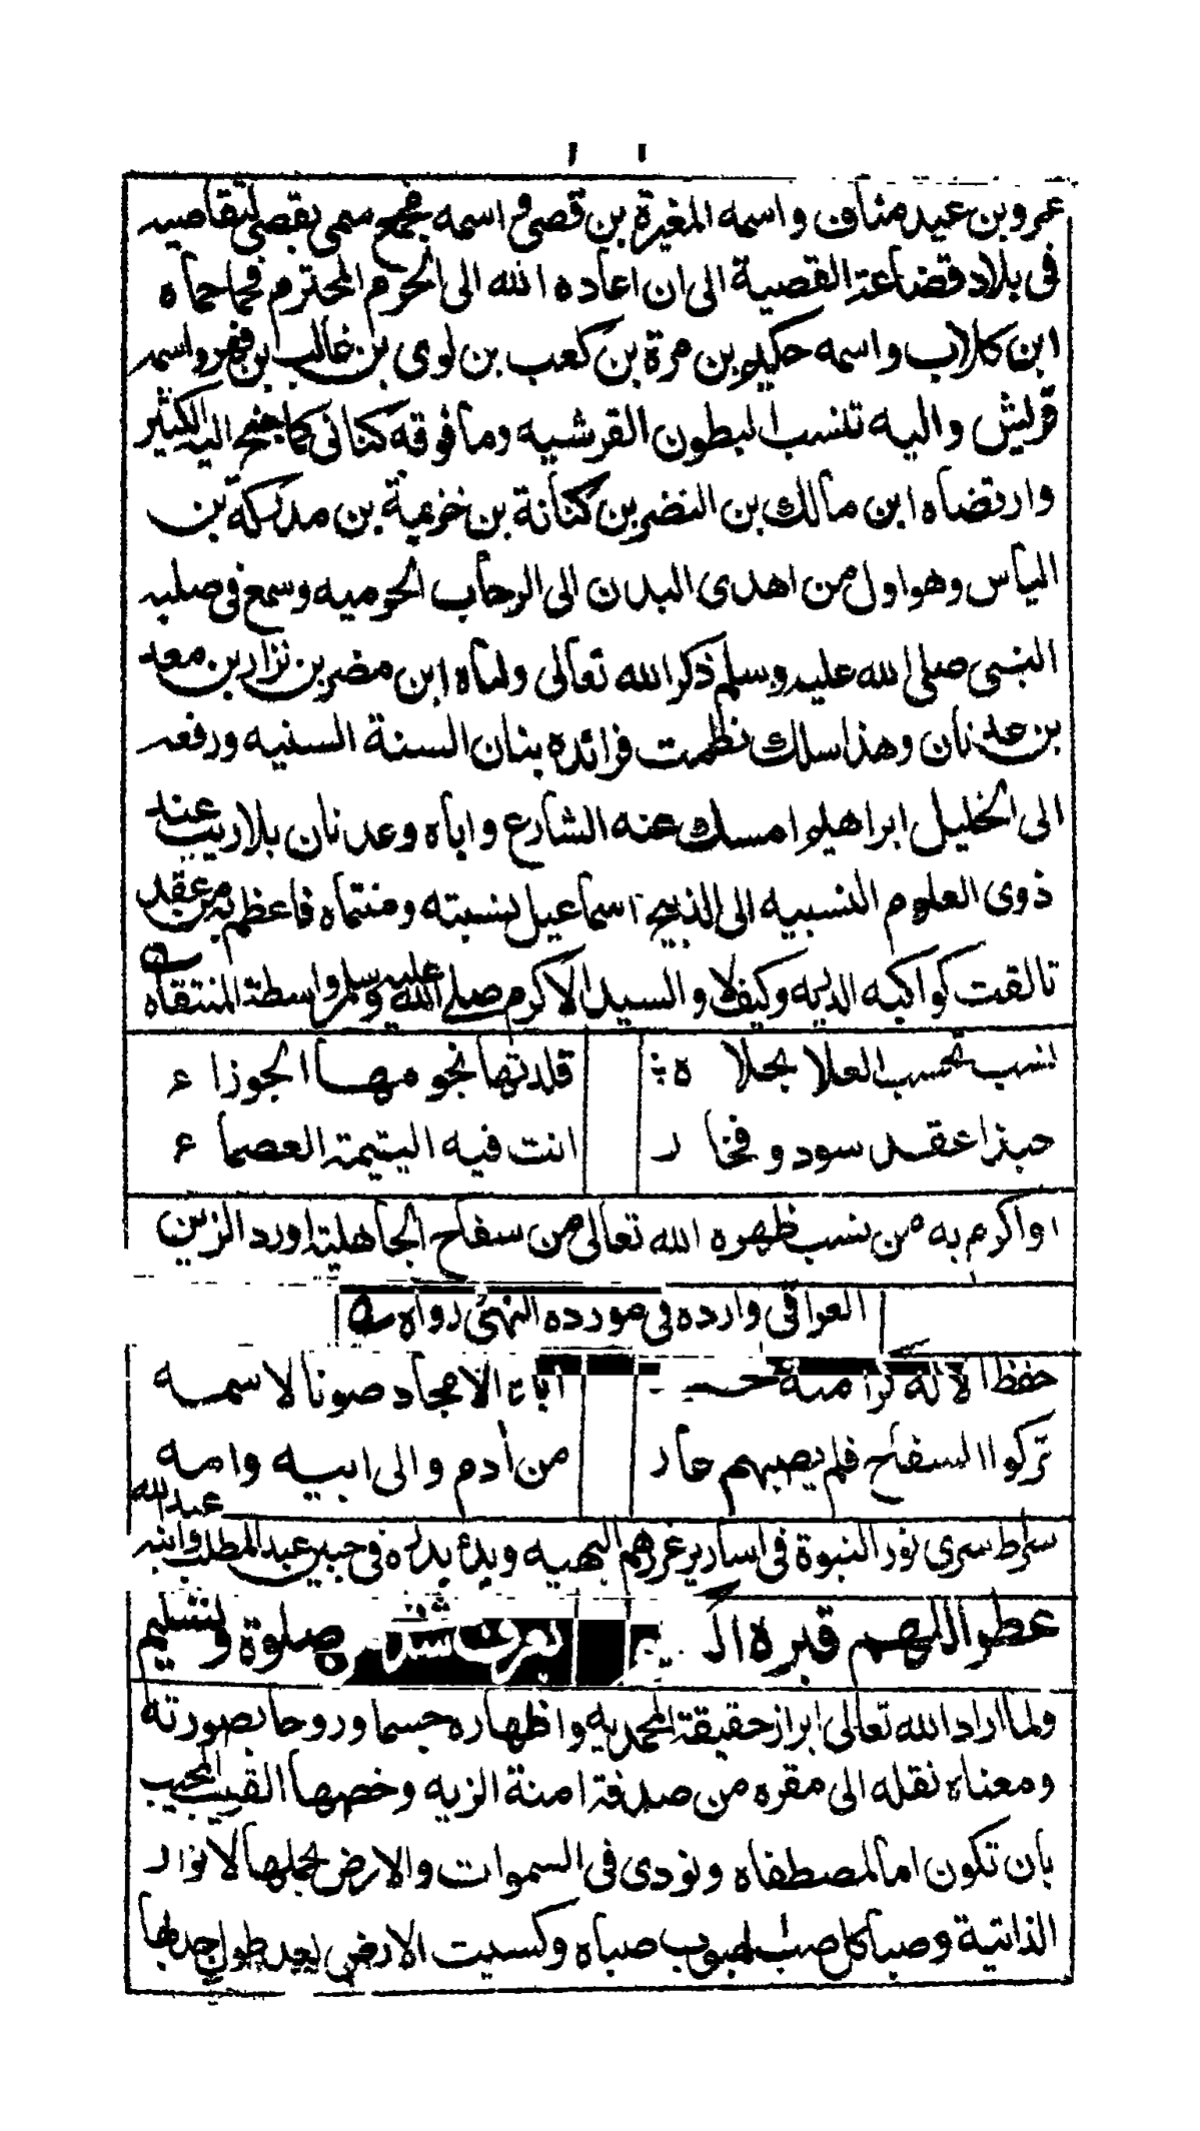 عمرو بن عبد مناف واسمه المغيرة بن قصى واسمه مجمع سمى بقصى لتقاصيه
فى بلاد قضاعة القصية الى ان اعاده الله الى الحرم المحترم فحما حماه
ابن كلاب واسمه حكيم بن مرة بن كعب بن لوى بن غالب بن فهر واسمه
قريش واليه تنسب البطون القرشيه وما فوقه كنانى كما جنح اليه الكثير
وارتضاه ابن مالك بن النضر بن كنانة بن خزيمة بن مدركة بن
الياس وهو اول من اهدى البدن الى الرحاب الحرميه وسمع فى صلبه
النبى صلى الله عليه وسلم ذكر الله تعالى ولباه ابن مضر بن نزار بن معد
بن عدنان وهذا سلك نظمت فرائده بنان السنة السنيه ورفعه
الى الخليل ابراهيم امسك عنه الشارع واباه وعدنان بلا ريب عند
ذوى العلوم النسبيه الى الذبيح اسماعيل نسبته ومنتماه فاعظم به من عقد
تالقت كواكبه الدريه وكيف لا والسيد الاكرم صلى الله عليه وسلم واسطة المنتقاه
نسب تحسب العلا بحلا ه قلدتها نجومها الجوزا ء
حبذا عقد سود وفخا ر انت فيه اليتيمة العصما ء
واكرم به من نسب طهره الله تعالى من سفاح الجاهلية اورد الزين
العراقى وارده فى مورده الهنى ورواه
حفظ الاله كرامة اباء الامجاد صونا لاسمه
تركوا السفاح فلم يصبهم عار من أدم والى ابيه وامه
سراط سرى نور النبوة فى اسارير غررهم البهيه وبدى بدره فى جبين عبد المطلب وابنه عبد الله
عطر اللهم قبره صلوة وتسليم
ولما اراد الله تعالى ابراز حقيقة المحمديه واظهاره جسما وروحا بصورته
ومعناه نقله الى مقره من صدفة امنة الزهريه وخصها القريب المجيب
بان تكون اما لمصطفاه ونودى فى السموات والارض بحملها لانوار
الذاتية وصبا كل صب لهبوب صباه وكسيت الارض بعد طول جدبها